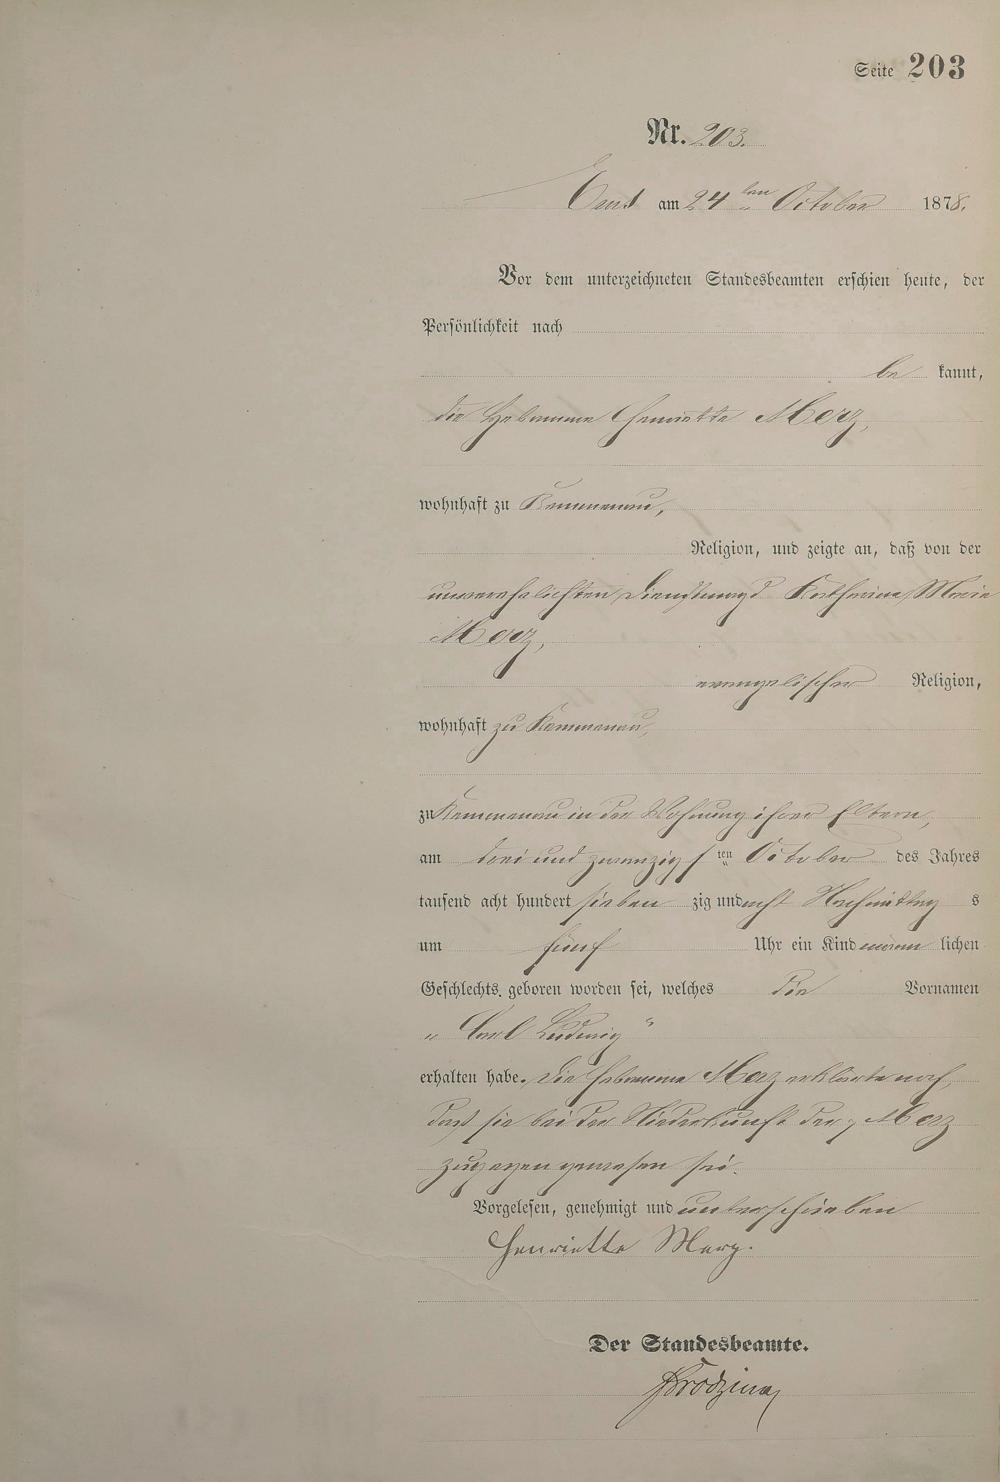 Seite 203
Nr. 203.
Ems am 24 ten October 1878.
Vor dem unterzeichneten Standesbeamten erschien heute, der
Persönlichkeit nach
be kannt,
die Hebamme Henriette Merz,
wohnhaft zu Kemmenau,
Religion, und zeigte an, daß von der
unverehelichten Dienstmagd Katharina Marie
Merz,
evangelischer Religion,
wohnhaft zu Kemmenau,
zu Kemmenau in der Wohnung ihrer Eltern,
am drei und zwanzigsten October des Jahres
tausend acht hundert sieben zig und acht Nachmittag s
um fünf Uhr ein Kind männ lichen
Geschlechts geboren worden sei, welches die Vornamen
„Carl Ludwig“
erhalten habe. Die Hebamme Merz erklärte noch,
daß sie bei der Niederkunft der Merz
zugegen gewesen sei.
Vorgelesen, genehmigt und unterschrieben
Henriette Merz.
Der Standesbeamte.